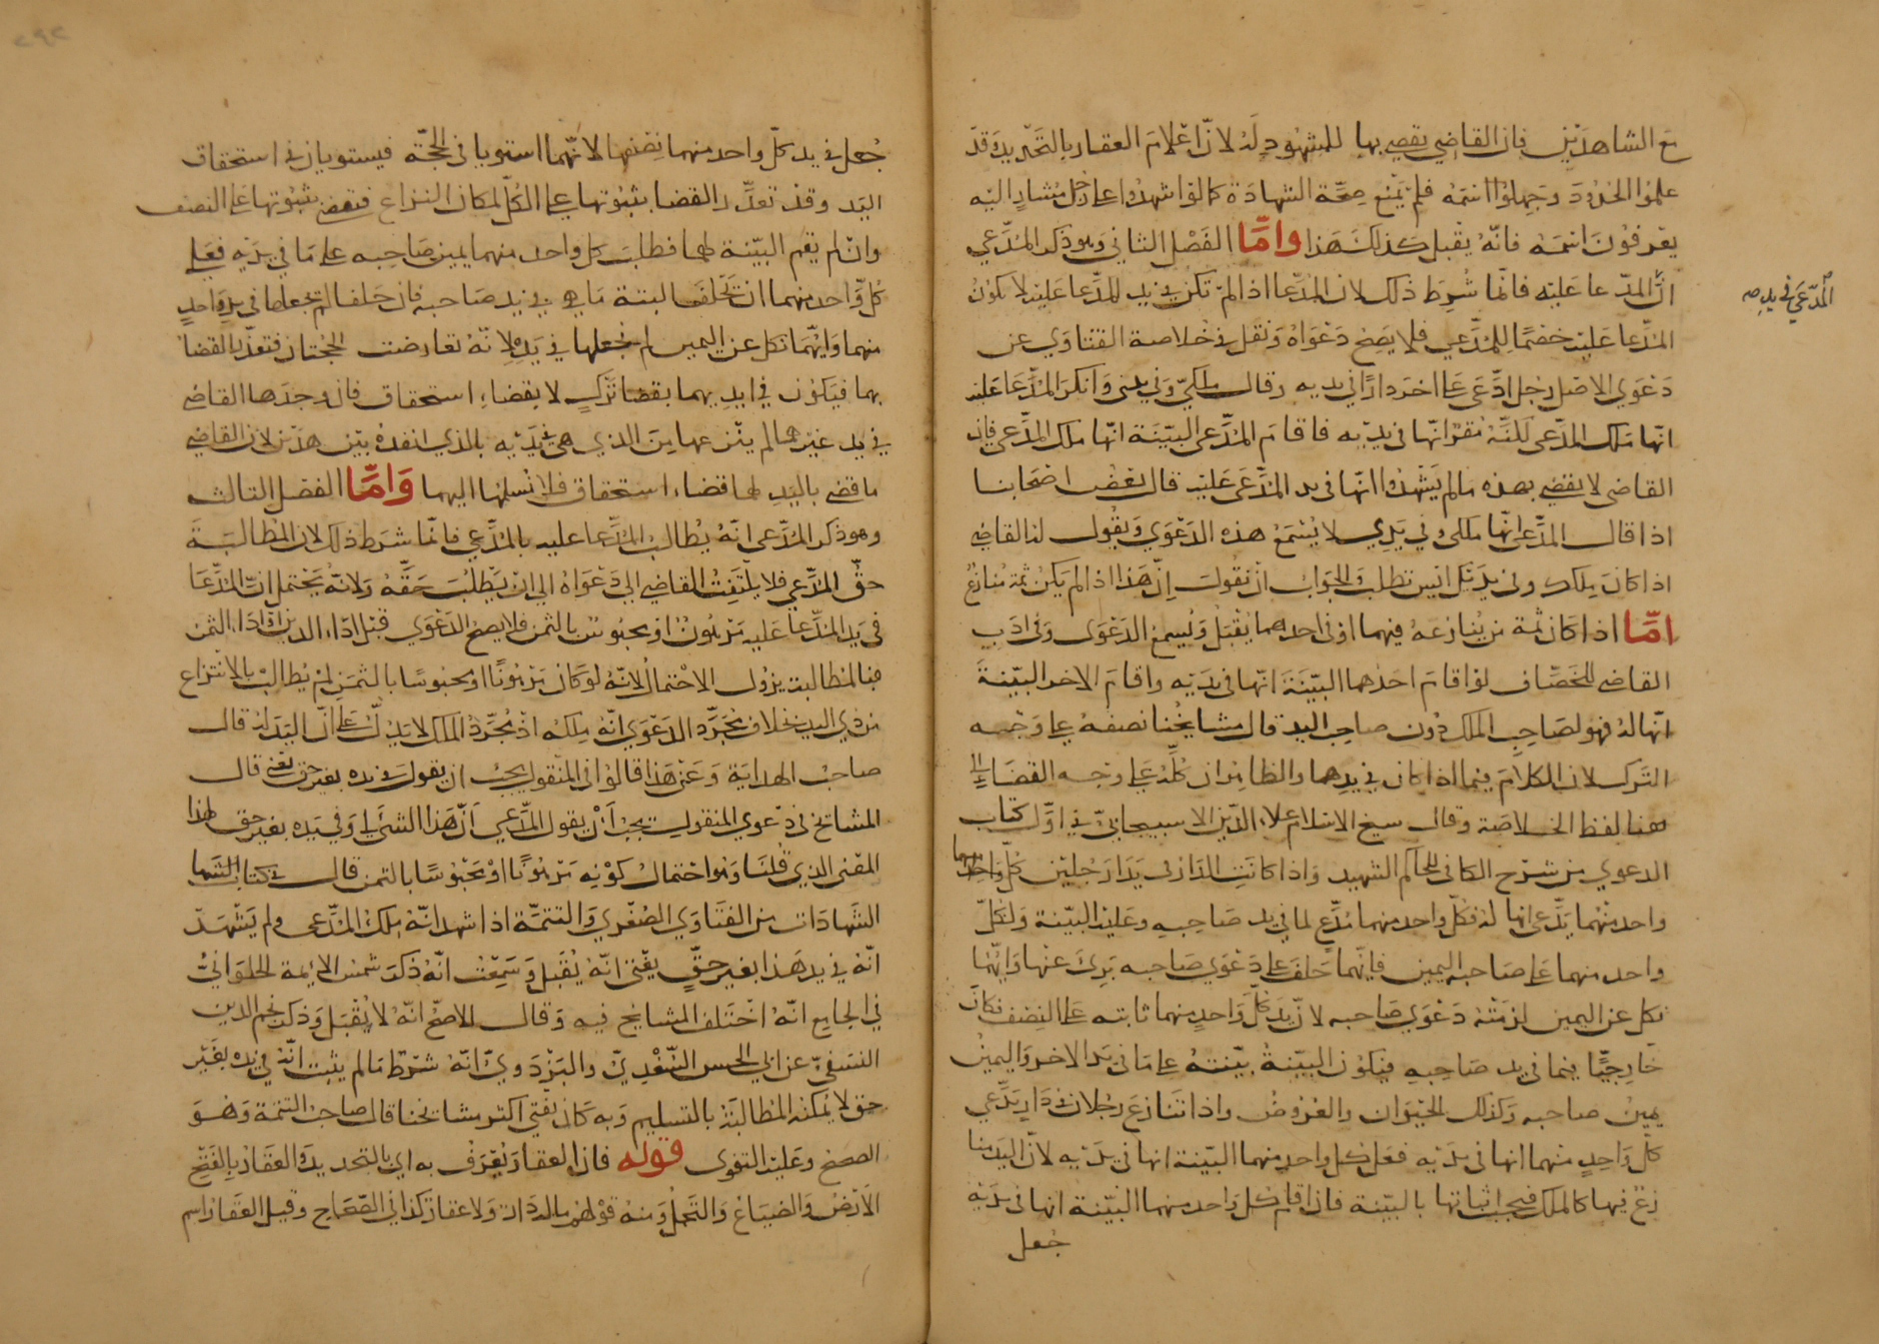 مع الشاهدين فان القاضي يقضي بها للمشهود له لان اعلام العقار بالتحديد وقد
علموا الحدود وجهلوا اسمه فلم يمنع صحة الشهادة كما لو اشهدوا على رجل مشار اليه
يعرفون اسمه فانه يقبل كذلك هذا واما الفصل الثاني وهو ذكر المدعي
ان المدعا عليه فانما شرط ذلك لان المدعا اذا لم تكن في يد المدعا عليه لا يكون
المدعي في يده صح
المدعا عليه خصما للمدعي فلا يصح دعواه ونقل في خلاصة الفتاوي عن
دعوي الاصل رجل ادعى على اخر دارا في يديه وقال ملكي وفي يدي وانكر المدعا عليه
انها ملك المدعى لكنه مقر انها في يديه فاقام المدعى البينة انها ملك المدعى فان
القاضى لا يقضي بهذه ما لم يشهدوا انها في يد المدعى عليه قال بعض اصحابنا
اذا قال المدعى انها ملكى وفي يدي لا يسمع هذه الدعوي ويقول له القاضي
اذا كان ملكك وفي يدك ايش تطلب والجواب ان نقول ان هذا اذا لم يكن ثمة منازع
اما اذا كان ثمة من ينازعه فيهما او في احدهما يقبل ويسمع الدعوى وفي ادب
القاضي للخصاف لو اقام احدهما البينة انها في يديه واقام الاخر البينة
انها له فهو لصاحب الملك دون صاحب اليد قال مشايخنا نصفه على وجه
الترك لان الكلام فيما اذا كان في يدهما والظاهر ان كله على وجه القضاء الى
هنا لفظ الخلاصة وقال شيخ الاسلام علاء الدين الاسبيجابي في اول كتاب
الدعوي من شرح الكافي للحاكم الشهيد واذا كانت الدار في يدا رجلين كل واحد منهما
واحد منهما يدعى انها له فكل واحد منهما مدع لما في يد صاحبه وعليه البينة ولكل
واحد منهما على صاحبه اليمين فايهما حلف على دعوي صاحبه برئ عنها وايهما
نكل عن اليمين لزمته دعوي صاحبه لان يد كل واحد منهما ثابته على النصف فكان
خارجيا فيما في يد صاحبه فيكون البينة بينته على ما في يد الاخر واليمين
يمين صاحبه وكذلك الحيوان والعروض واذا تنازع رجلان في دار يدعي
كل واحد منهما انها في يديه فعلى كل واحد منهما البينة انها في يديه لان اليد منا
زع فيها كالملك فيجب اثباتها بالبينة فان اقام كل واحد منهما البينة انها في يديه
جعل
جعل في يد كل واحد منهما نصفها لانهما استويا في الحجة فيستويان في استحقاق
اليد وقد تعذر القضا بثبوتها على الكل لمكان النزاع فتقضي بثبوتها على النصف
وان لم يقم البينة لهما فطلب كل واحد منهما يمين صاحبه على ما في يديه فعلى
كل واحد منهما ان يحلف البتة ما هي في يد صاحبه فان حلفا لم نجعلها في يد واحد
منهما وايهما نكل عن اليمين لم نجعلها في يده لانه تعارضت الحجتان فتعذر القضا
بهما فيكون في ايديهما بقضا ترك لا بقضاء استحقاق فان وجدها القاضي
في يد غيرهما لم ينزعها من الذي هي في يديه بالذي انفده بين هذين لان القاضي
ما قضى باليد لهما قضاء استحقاق فلا نسلمها اليهما واما الفصل الثالث
وهو ذكر المدعي انه يطالب المدعا عليه بالمدعي فانما شرط ذلك لان المطالبة
حق المدعي فلا يلتفت القاضي الي دعواه الي ان يطلب حقه ولانه يحتمل ان المدعا
في يد المدعا عليه مرهون او محبوس بالثمن فلا يصح الدعوي قبل اداء الدين او اداء الثمن
فبالمطالبة يزول الاحتمال لانه لو كان مرهونا او محبوسا بالثمن لم يطالب بالانتزاع
من ذي اليد بخلاف مجرد الدعوي انه ملكه اذ مجرد الملك لا يدل على ان اليد له قال
صاحب الهداية وعن هذا قالوا في المنقول يجب ان يقول في يده بغير حق يعني قال
المشايخ في دعوي المنقول يجب ان يقول المدعي ان هذا الشئ لي وفي يده بغير حق لهذا
المعنى الذي قلنا وهو احتمال كونه مرهونا او محبوسا بالثمن قال في كتاب الشها
الشهادات من الفتاوي الصغري والتتمة اذا شهدا انه ملك المدعى ولم يشهد
انه في يد هذا بغير حق يفتى انه يقبل وسمعت انه ذكر شمس الائمة الحلواني
في الجامع انه اختلف المشايخ فيه وقال الاصح انه لا يقبل وذكر نجم الدين
النسفي عن ابي الحسن السغدي والبزدوي انه شرط ما لم يثبت انه في يده بغير
حق لا يمكنه المطالبة بالتسليم وبه كان يفتي اكثر مشايخنا قال صاحب التتمة وهو
الصحيح وعليه الفتوى قوله فان العقار يعرف به اي بالتحديد والعقار بالفتح
الارض والضياع والنخل ومنه قولهم ماله دار ولا عقار كذا في الصحاح وقيل العقار اسم